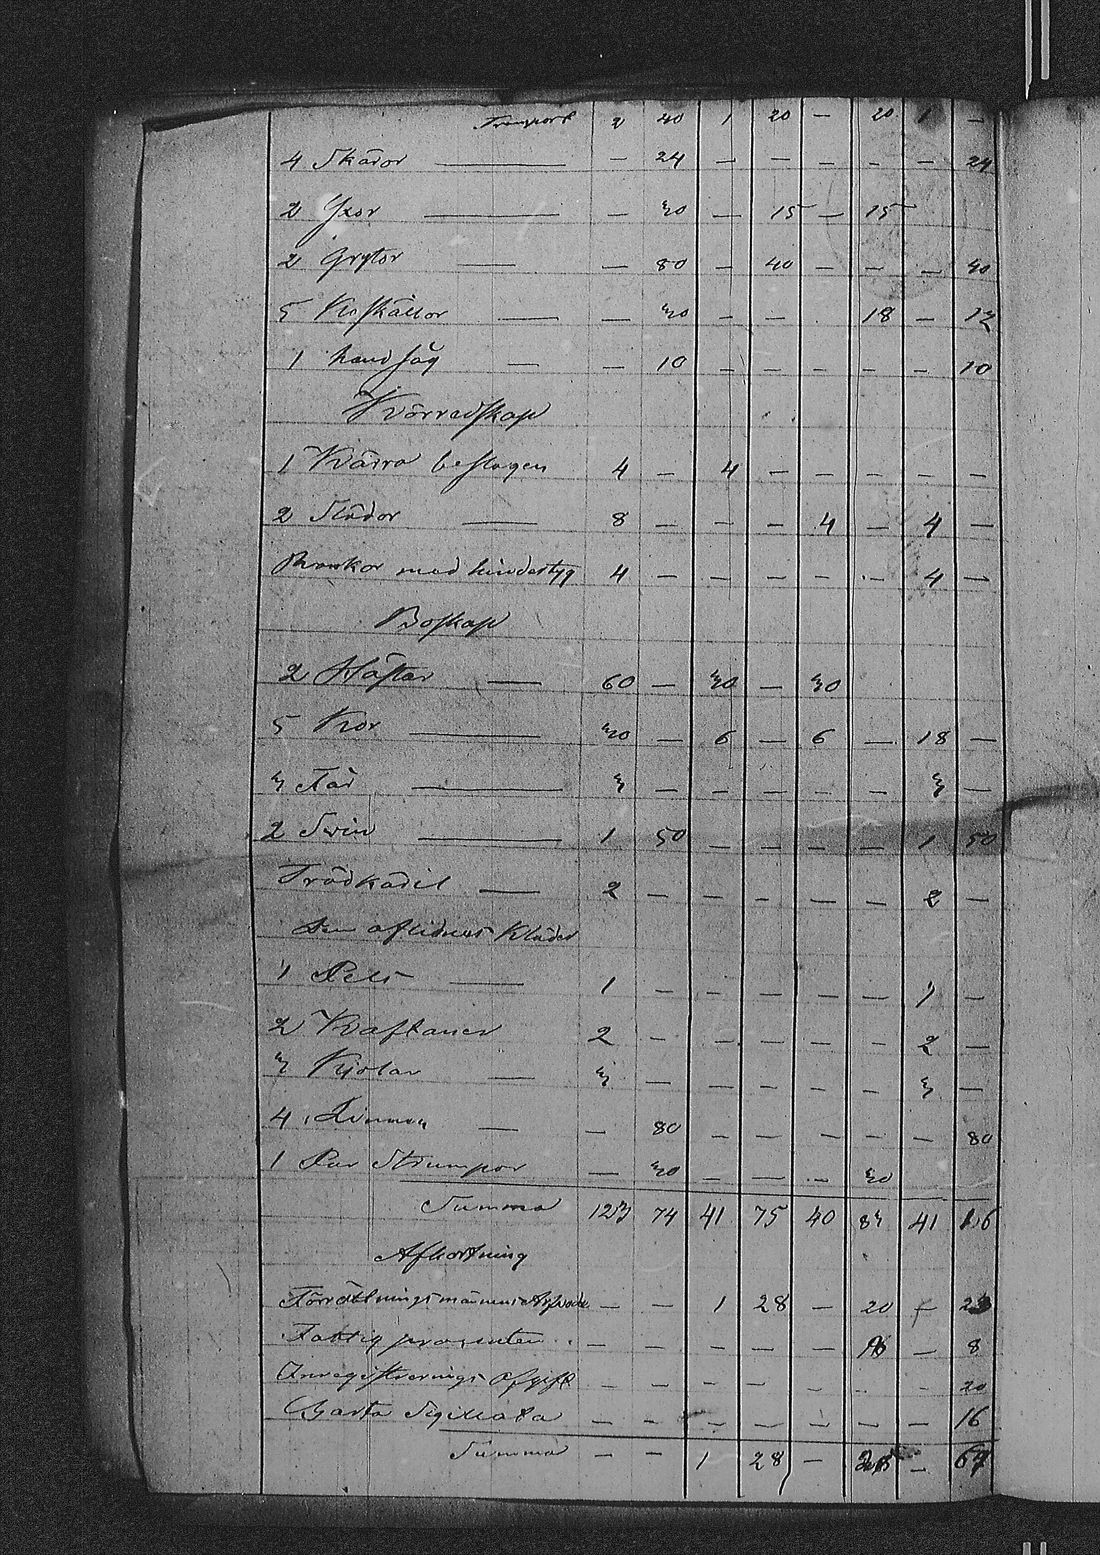 Transport 2 40 1 20 — 20 1 —
4 Skäror — 24 — — — — — 24
2 Yxor — 30 — 15 — 15
2 Grytor — 80 — 40 — — — 40
5 Koskällor — 30 — — 18 — 12
1 handsåg — 10 — — — — — 10
Körredskap
1 Kärra beslagen 4 — 4 — — — — —
2 Slädor 8 — — — 4 — 4 —
Rankor med hindertyg 4 — — — — — 4 —
Boskap
2 Hästar 60 — 30 — 30
5 Kor 30 — 6 — 6 — 18 —
3 Får 3 — — — — — 3 —
2 Svin 1 50 — — — — 1 50
Trädkädil 2 — — — — — 2 —
Den aflidnes Kläder
1 Pels 1 — — — — — 1 —
2 Kaftaner 2 — — — — — 2 —
3 Kjolar 3 — — — — — 3 —
4 — 80 — — — — — 80
1 Par Strumpor — 30 — — — 30
Summa 123 74 41 75 40 83 41 16
Afkortning
Förrättningsmännens — — 1 28 — 20 —
Fattig procenten — — — — — — 8
Inregistrerings Afgift — — — — — 20
Charta Sigillata — — — — — — — 16
Summa — — 1 28 — — 67